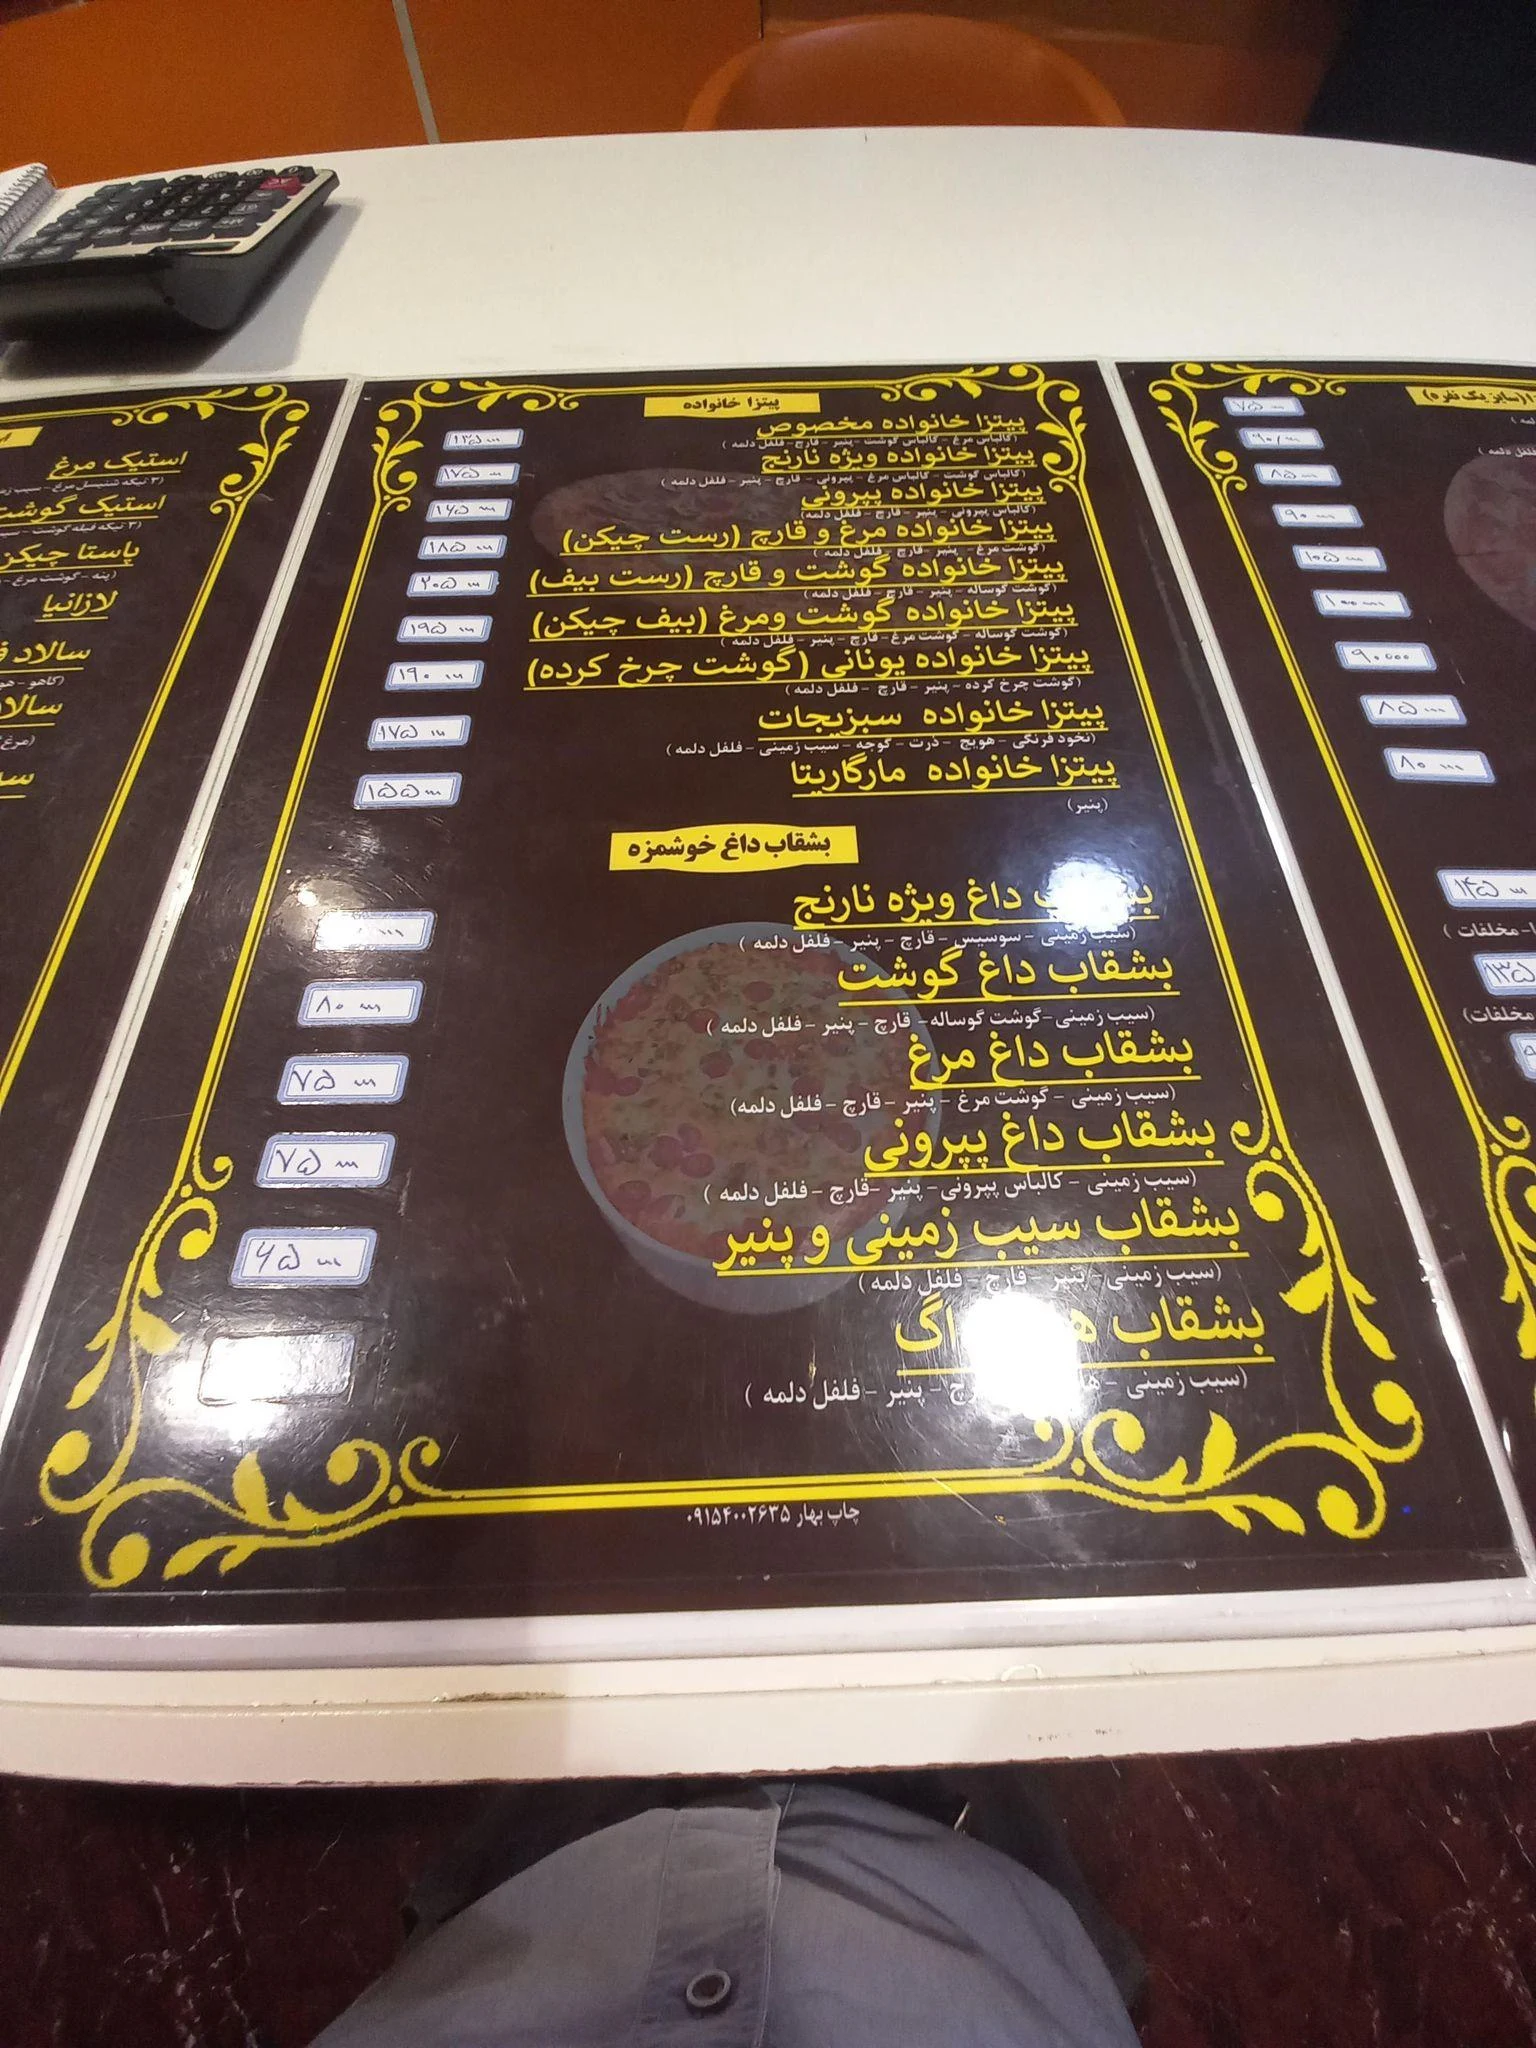 پیتزا خانواده
پیتزا خانواده مخصوص
۱۳۵۰۰۰
(کالباس مرغ - کالباس گوشت - پنیر - قارچ - فلفل دلمه)
پیتزا خانواده ویژه نارنج
۱۷۵۰۰۰
(کالباس گوشت - کالباس مرغ - پپرونی - قارچ - پنیر - فلفل دلمه)
پیتزا خانواده پپرونی
۱۶۵۰۰۰
(کالباس پپرونی - پنیر - قارچ - فلفل دلمه)
پیتزا خانواده مرغ و قارچ (رست چیکن)
۱۸۵۰۰۰
(گوشت مرغ - پنیر - قارچ - فلفل دلمه)
پیتزا خانواده گوشت و قارچ (رست بیف)
۲۰۵۰۰۰
(گوشت گوساله - پنیر - قارچ - فلفل دلمه)
پیتزا خانواده گوشت ومرغ (بیف چیکن)
۱۹۵۰۰۰
(گوشت گوساله - گوشت مرغ - قارچ - پنیر - فلفل دلمه)
پیتزا خانواده یونانی (گوشت چرخ کرده)
۱۹۰۰۰۰
(گوشت چرخ کرده - پنیر - قارچ - فلفل دلمه)
پیتزا خانواده سبزیجات
۱۷۵۰۰۰
(نخود فرنگی - هویج - ذرت - گوجه - سیب زمینی - فلفل دلمه)
پیتزا خانواده مارگاریتا
۱۵۵۰۰۰
(پنیر)
بشقاب داغ خوشمزه
داغ ویژه نارنج
(سیب زمینی - سوسیس - قارچ - پنیر - فلفل دلمه)
بشقاب داغ گوشت
۸۰۰۰۰
(سیب زمینی - گوشت گوساله - قارچ - پنیر - فلفل دلمه)
بشقاب داغ مرغ
۷۵۰۰۰
(سیب زمینی - گوشت مرغ - پنیر - قارچ - فلفل دلمه)
بشقاب داغ پپرونی
۷۵۰۰۰
(سیب زمینی - کالباس پپرونی - پنیر - قارچ - فلفل دلمه)
بشقاب سیب زمینی و پنیر
۶۵۰۰۰
(سیب زمینی - پنیر - قارچ - فلفل دلمه)
بشقاب
(سیب زمینی - پنیر - فلفل دلمه)
چاپ بهار ۰۹۱۵۴۰۰۲۶۳۵
(سایز یک نفره)
۷۵۰۰۰
۹۰۰۰۰
۸۵۰۰۰
۹۰۰۰۰
۱۰۵۰۰۰
۱۰۰۰۰۰
۹۰۰۰۰
۸۵۰۰۰
۸۰۰۰۰
۱۴۵۰۰۰
مخلفات)
۱۳۵
مخلفات)
استیک مرغ
(۳ تیکه شنیسل مرغ -
استیک گوشت
(۳ تیکه فیله گوشت -
پاستا چیکن
(پنه - گوشت مرغ -
لازانیا
سالاد
(کاهو -